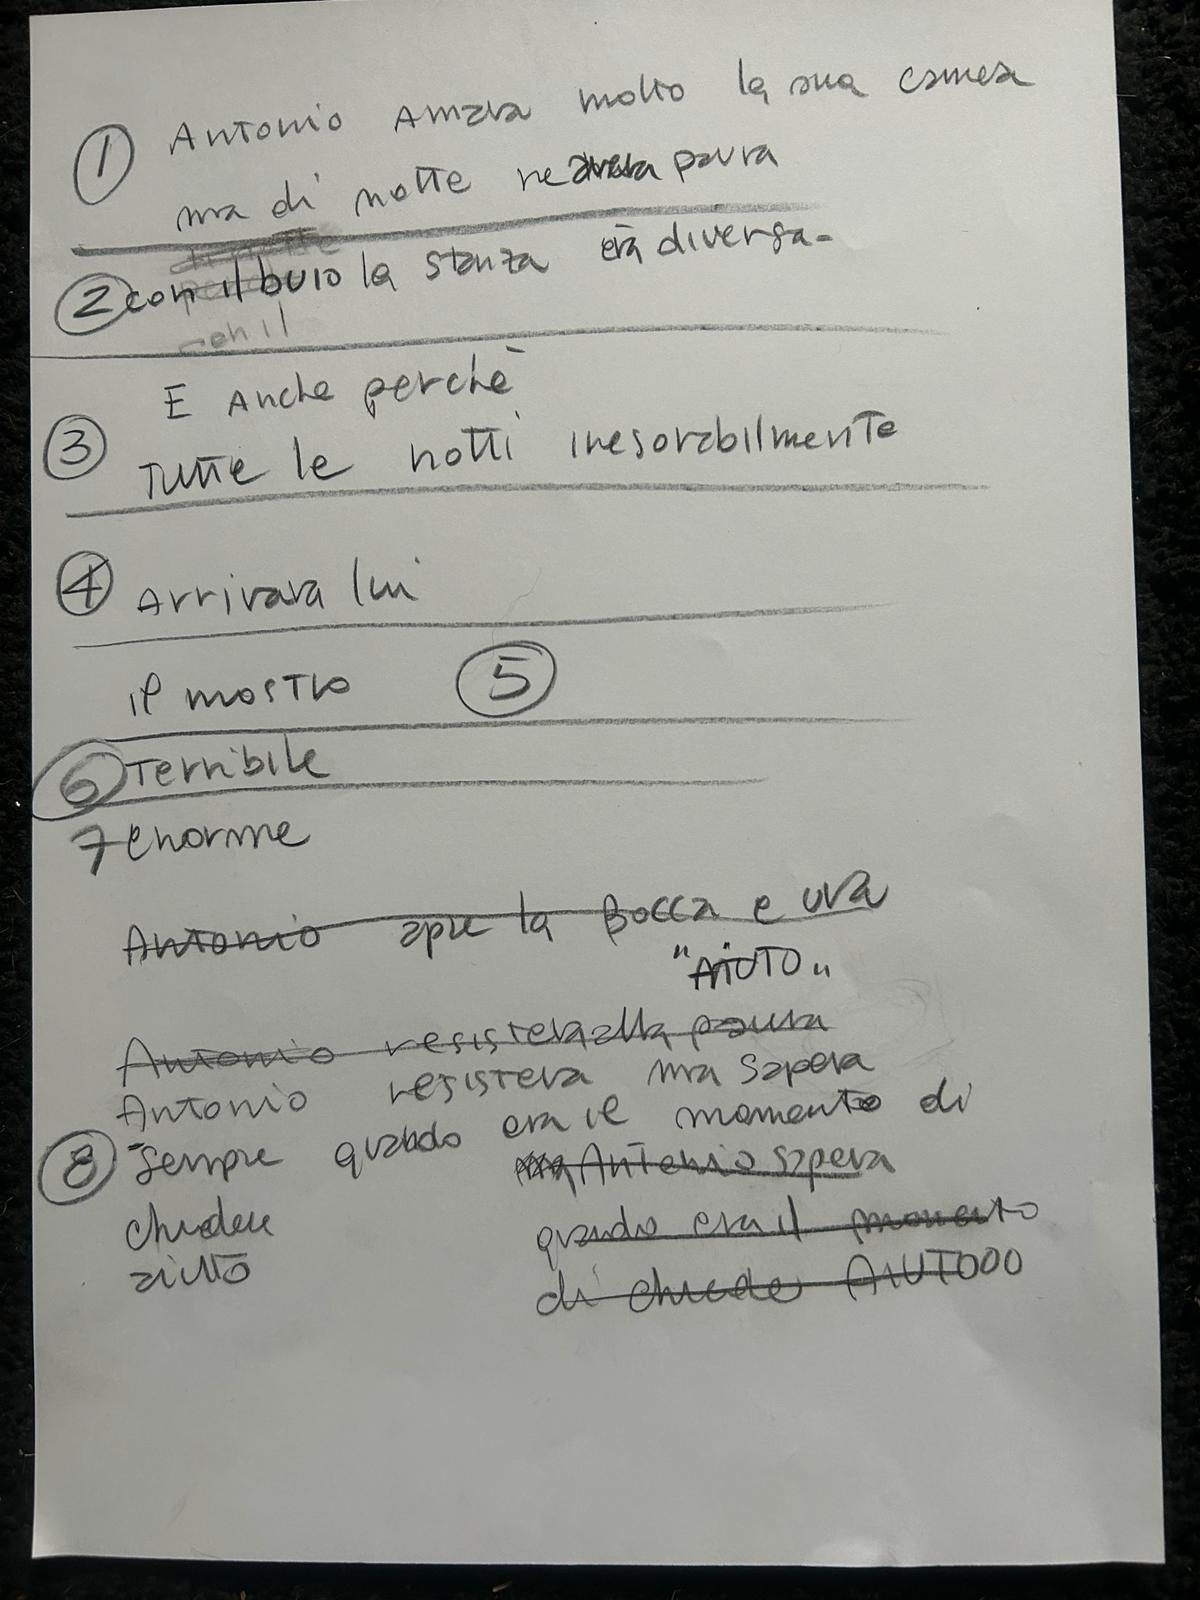 ① Antonio Amava molto la sua camera
ma di notte ne aveva paura
② con il buio la stanza era diversa-
con il
E Anche perchè
③ Tutte le notti inesorabilmente
④ Arrivava lui
il mostro ⑤
⑥ Terribile
7 Enorme
Antonio apre la Bocca e urla
"AIUTO"
Antonio resisteva alla paura
Antonio resisteva ma sapeva
⑧ Sempre quando era il momento di
Antonio sapeva
chiedere
quando era il momento
aiuto
di chiede AIUTOOO